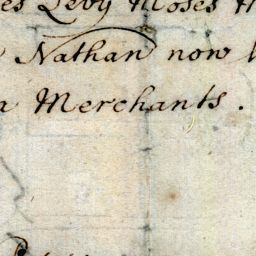 Levy Moses
Nathan now
Merchants.